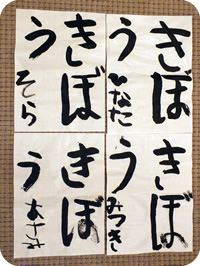 きぼ
う
ひなた
きぼ
う
そら
きぼ
う
みつき
きぼ
う